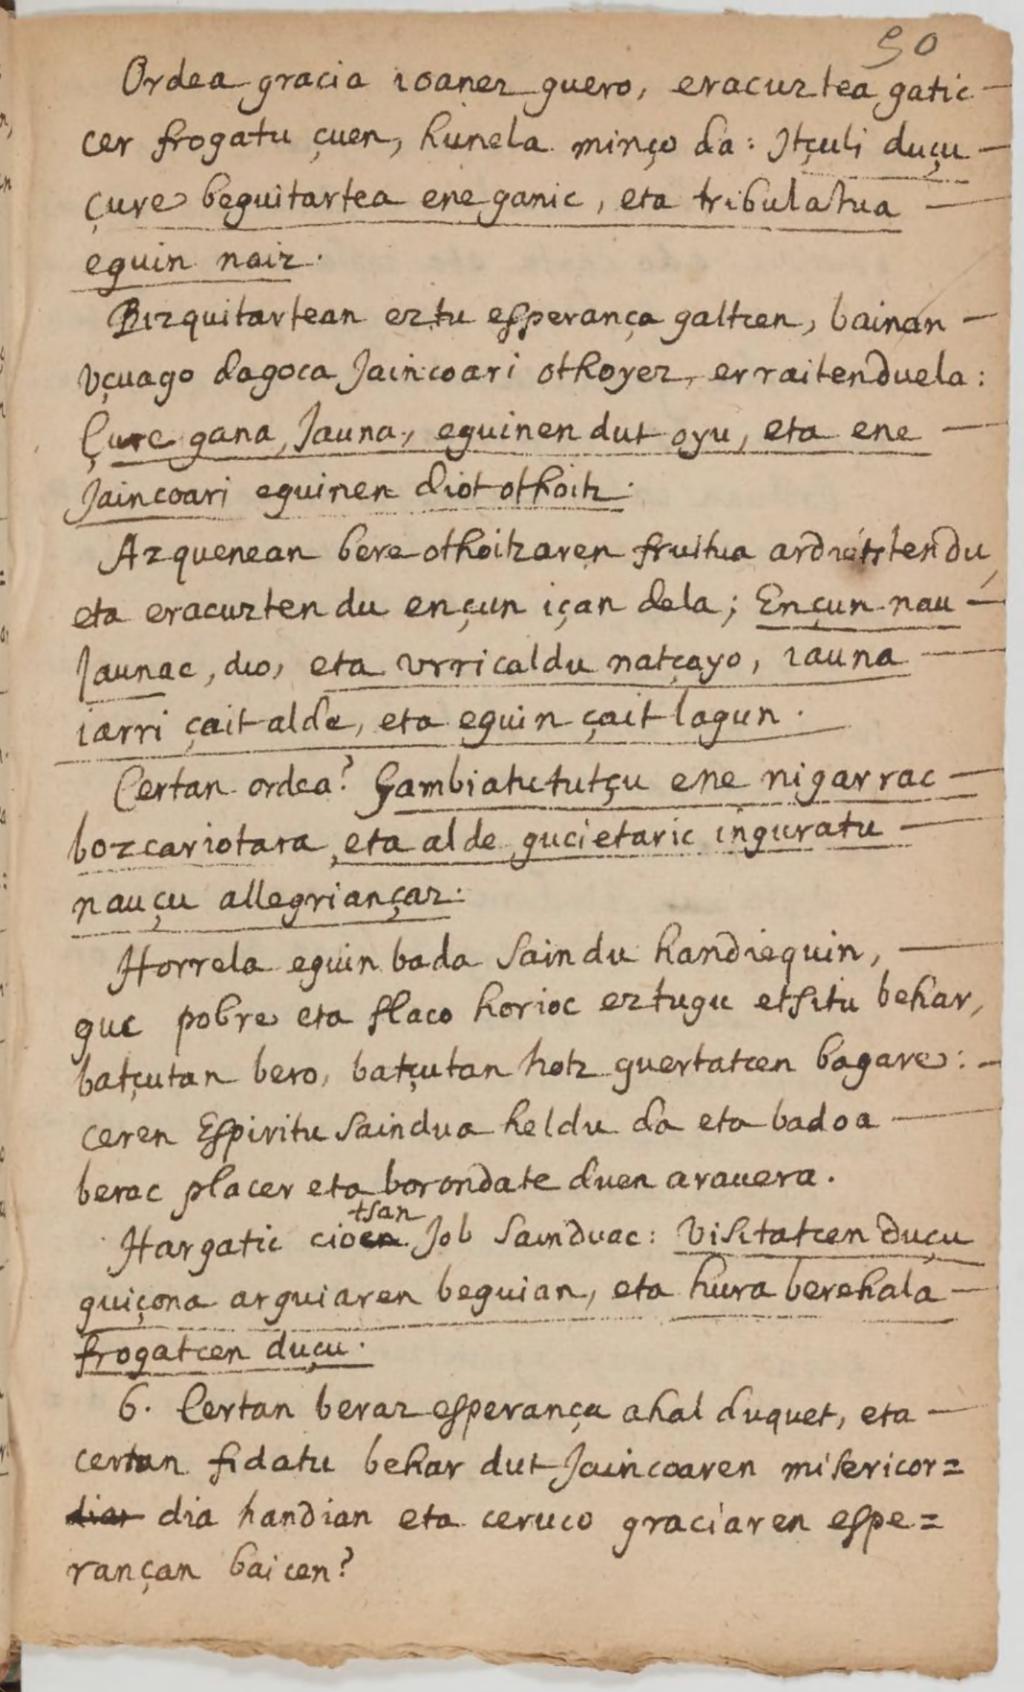 50
Ordea gracia ioanez guero, eracuztea gatic
cer frogatu çuen, hunela minço da: Itçuli duçu
çure beguitartea ene ganic, eta tribulatua
eguin naiz.
Bizquitartean eztu esperança galtcen, bainan
vçuago dagoca Jaincoari othoyez, erraitenduela:
Çure gana, Jauna, eguinen dut oyu, eta ene
Jaincoari eguinen diot othoitz.
Azquenean bere othoitzaren fruitua ardietstendu,
eta eracuzten du ençun içan dela; Ençun nau
Jaunac, dio, eta vrricaldu natçayo, iauna
iarri çait alde, eta eguin çait lagun.
Certan ordea? Gambiatu tutçu ene nigarrac
bozcariotara, eta alde gucietaric inguratu
nauçu allegriançaz.
Horrela eguin bada Saindu handiequin,
guc pobre eta flaco horioc eztugu etsitu behar,
batçutan bero, batçutan hotz guertatcen bagare:
ceren Espiritu Saindua heldu da eta badoa
berac placer eta borondate duen arauera.
tsan
Hargatic cioen Job Sainduac: Visitatcen duçu
guiçona arguiaren beguian, eta hura berehala
frogatcen duçu.
6. Certan beraz esperança ahal duquet, eta
certan fidatu behar dut Jaincoaren misericor=
diaz dia handian eta ceruco graciaren espe=
rançan baicen?